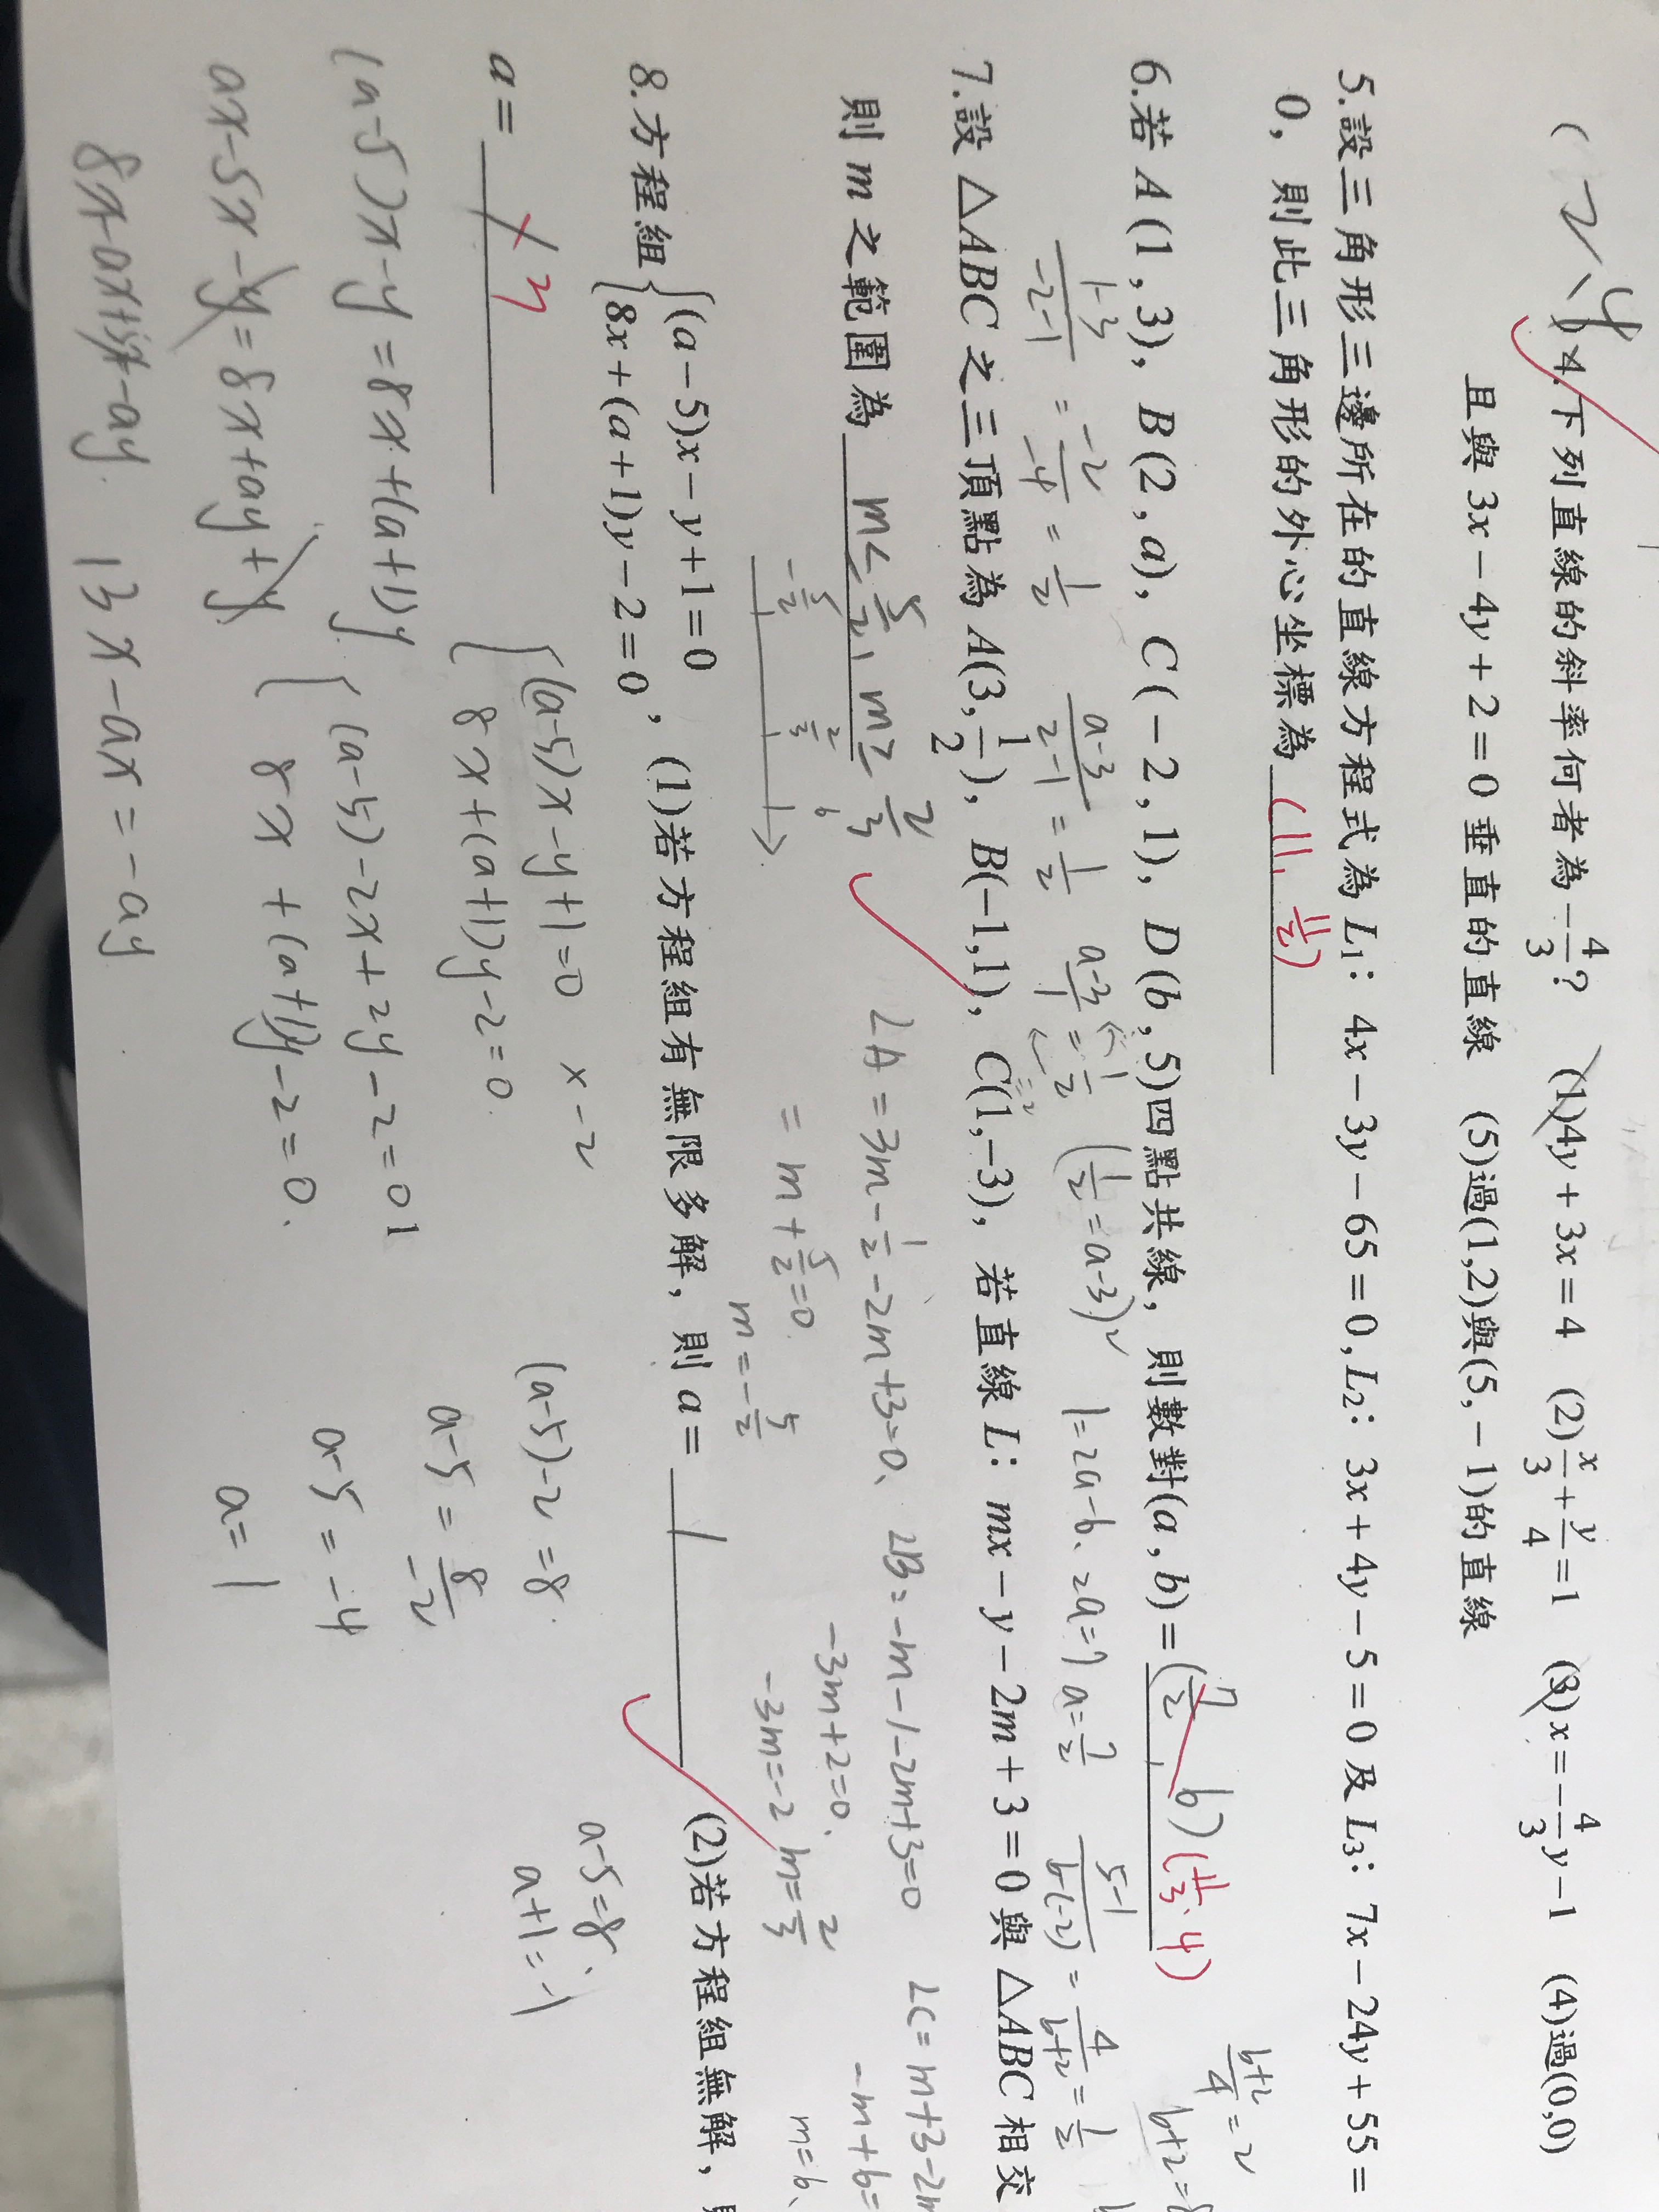 (2、4) 4.下列直線的斜率何者為-4/3? (1)4y+3x=4 (2)x/3+y/4=1 (3)x=-4/3y-1 (4)過(0,0)
且與3x-4y+2=0垂直的直線 (5)過(1,2)與(5,-1)的直線
5.設三角形三邊所在的直線方程式為L1:4x-3y-65=0,L2:3x+4y-5=0及L3:7x-24y+55=
0,則此三角形的外心坐標為
6.若A(1,3),B(2,a),C(-2,1),D(b,5)四點共線,則數對(a,b)=(7/2,6) (11/3.4)
1-3/-2-1=-2/-4=1/2 a-3/2-1=1/2 a-3/1=1/2 (1/2=a-3)2 1=2a-6、2a=7 a=7/2 5-1/b-(-2)=4/b+2=1/2
b+2/4=2
7.設△ABC之三頂點為A(3,1/2),B(-1,1),C(1,-3),若直線L:mx-y-2m+3=0與△ABC相交
LA=3m-1/2-2m+3=0、LB=-m-1-2m+3=0 LC=m+3-2m
=m+5/2=0 -3m+2=0、 -m+6=
m=-5/2 -3m=-2 m=2/3 m=6、
則m之範圍為
-5/2 2/3 6
8.方程組{(a-5)x-y+1=0
8x+(a+1)y-2=0,(1)若方程組有無限多解,則a=1 (2)若方程組無解,
a=
{(a-5)x-y+1=0 x-2
8x+(a+1)y-2=0
(a-5)-2=8
a-5=8/-2
a-5=-4
a=1
a-5=8、
a+1=-1
(a-5)x-y=8x+(a+1)y
{(a-5)-2x+2y-2=01
8x+(a+1)y-2=0.
ax-5x-y=8x+ay+y
13x-ax=-ay